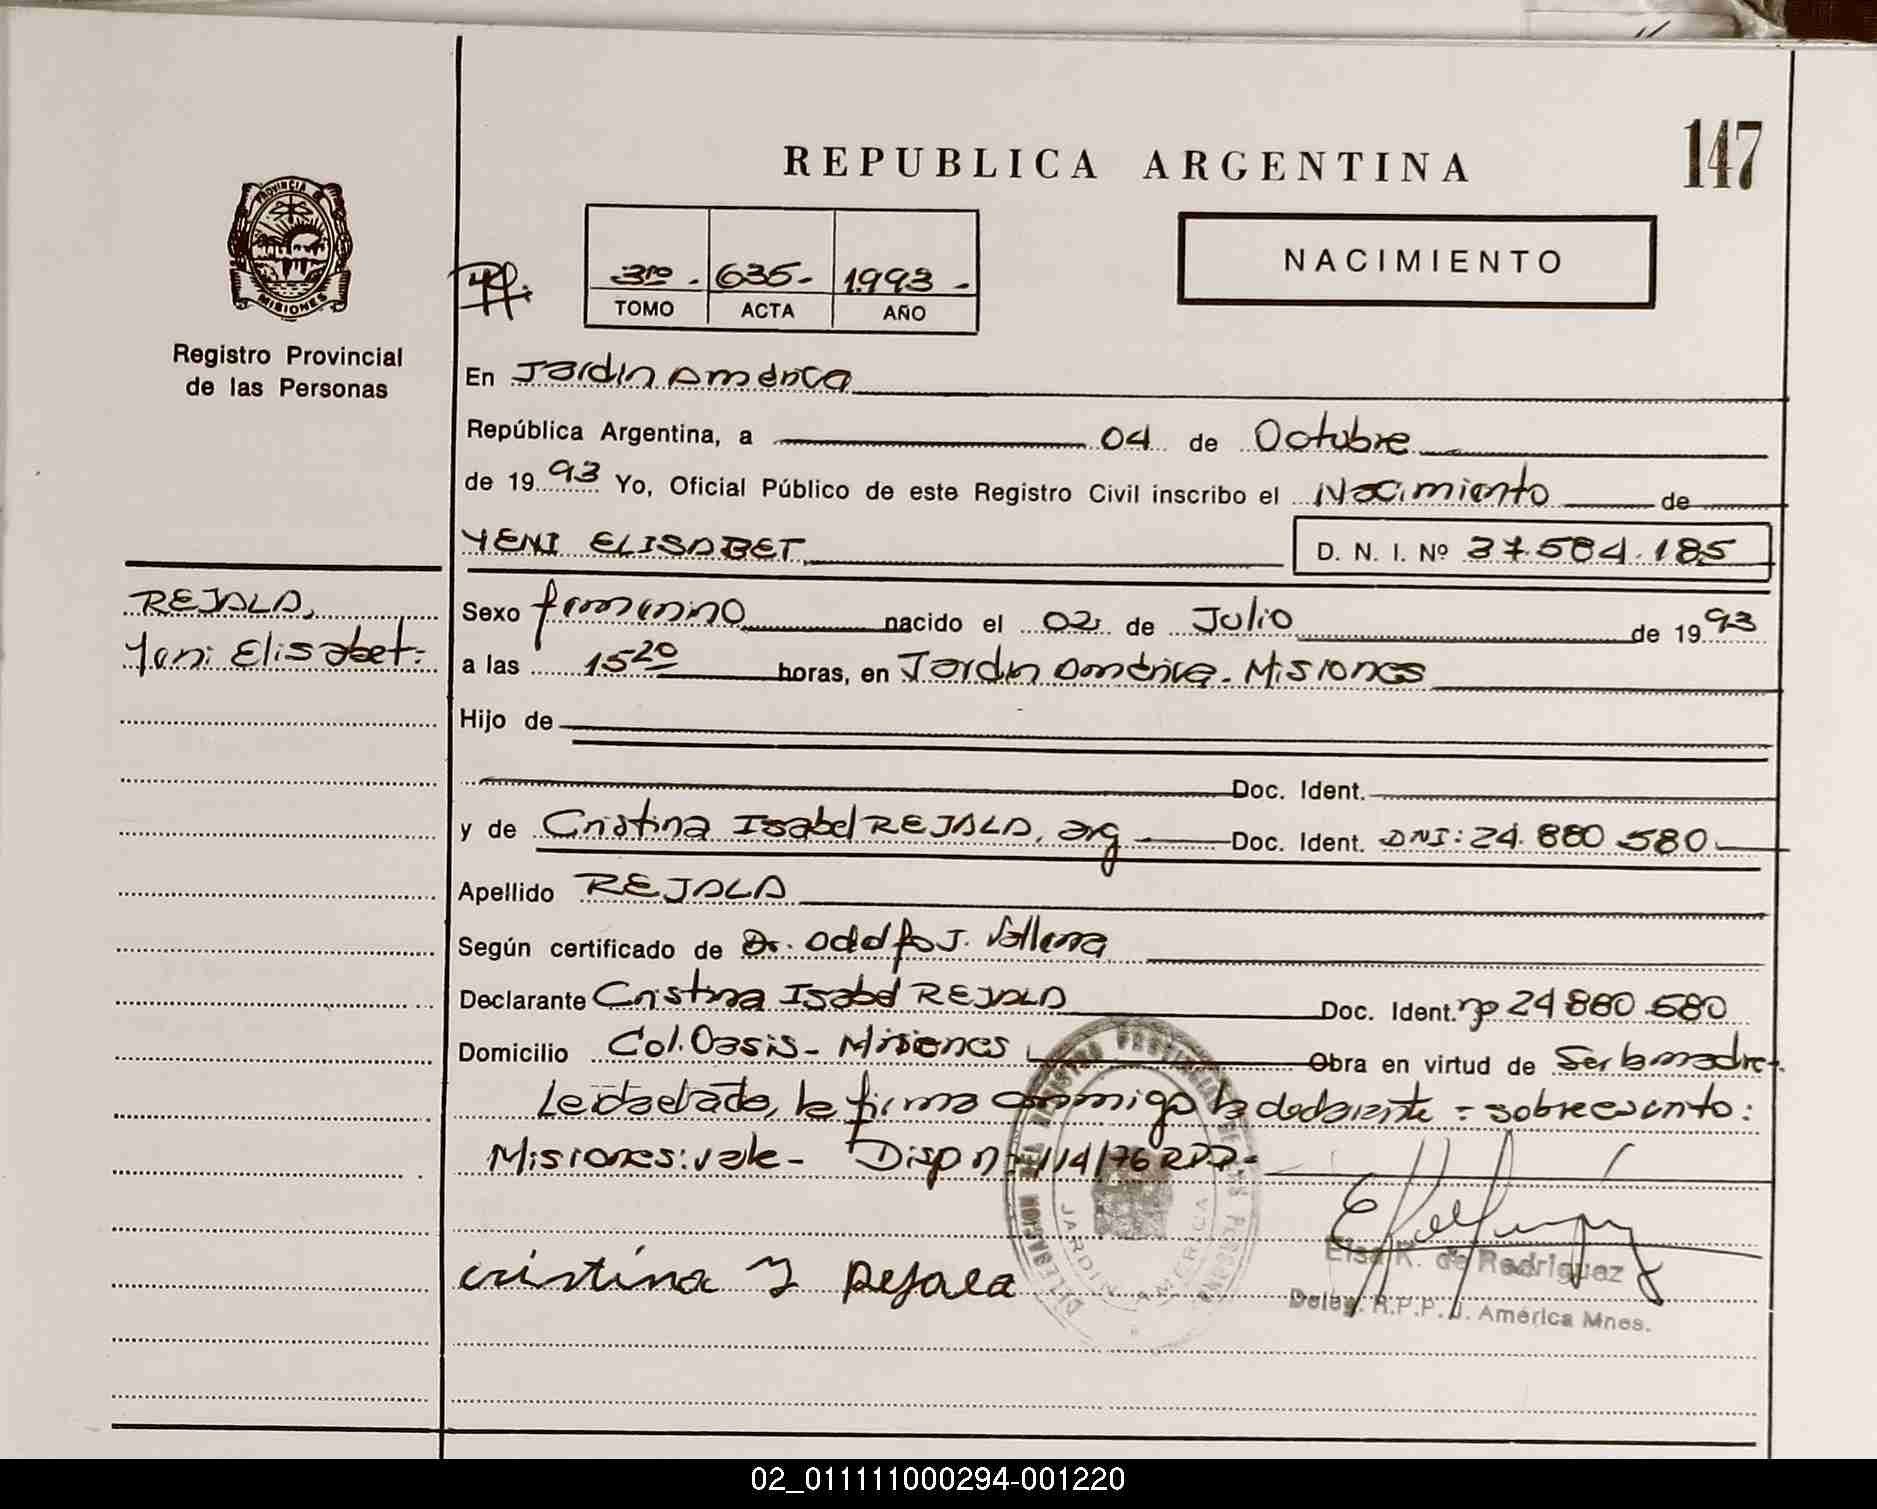 147
REPUBLICA ARGENTINA
PROVINCIA DE
MISIONES
Registro Provincial
de las Personas
NACIMIENTO
3ro - 635- 1993 -
TOMO ACTA AÑO
En Jardín América
República Argentina, a 04 de Octubre
de 1993 Yo, Oficial Público de este Registro Civil inscribo el Nacimiento de
YENI ELISABET D. N. I. Nº 37.584.185
REJALA,
Yeni Elisabet-
Sexo femenino nacido el 02 de Julio de 1993
a las 15 20 horas, en Jardín América - Misiones
Hijo de
Doc. Ident.
y de Cristina Isabel REJALA, arg Doc. Ident. DNI: 24.880 580
Apellido REJALA
Según certificado de Dr. J.
Declarante Cristina Isabel REJALA Doc. Ident. nº 24 880 580
Domicilio Col. Oasis - Misiones Obra en virtud de Ser la madre-
Leída el acta, la firma conmigo la declarante = sobreescrito:
Misiones: vale - Disp nº 114/76 RPP-
cristina Y Rejala
DELEGACION DEL REGISTRO PROVINCIAL DE LAS PERSONAS
JARDIN AMERICA
Elsa K. de Rodriguez
Deleg. R.P.P. J. América Mnes.
02_011111000294-001220